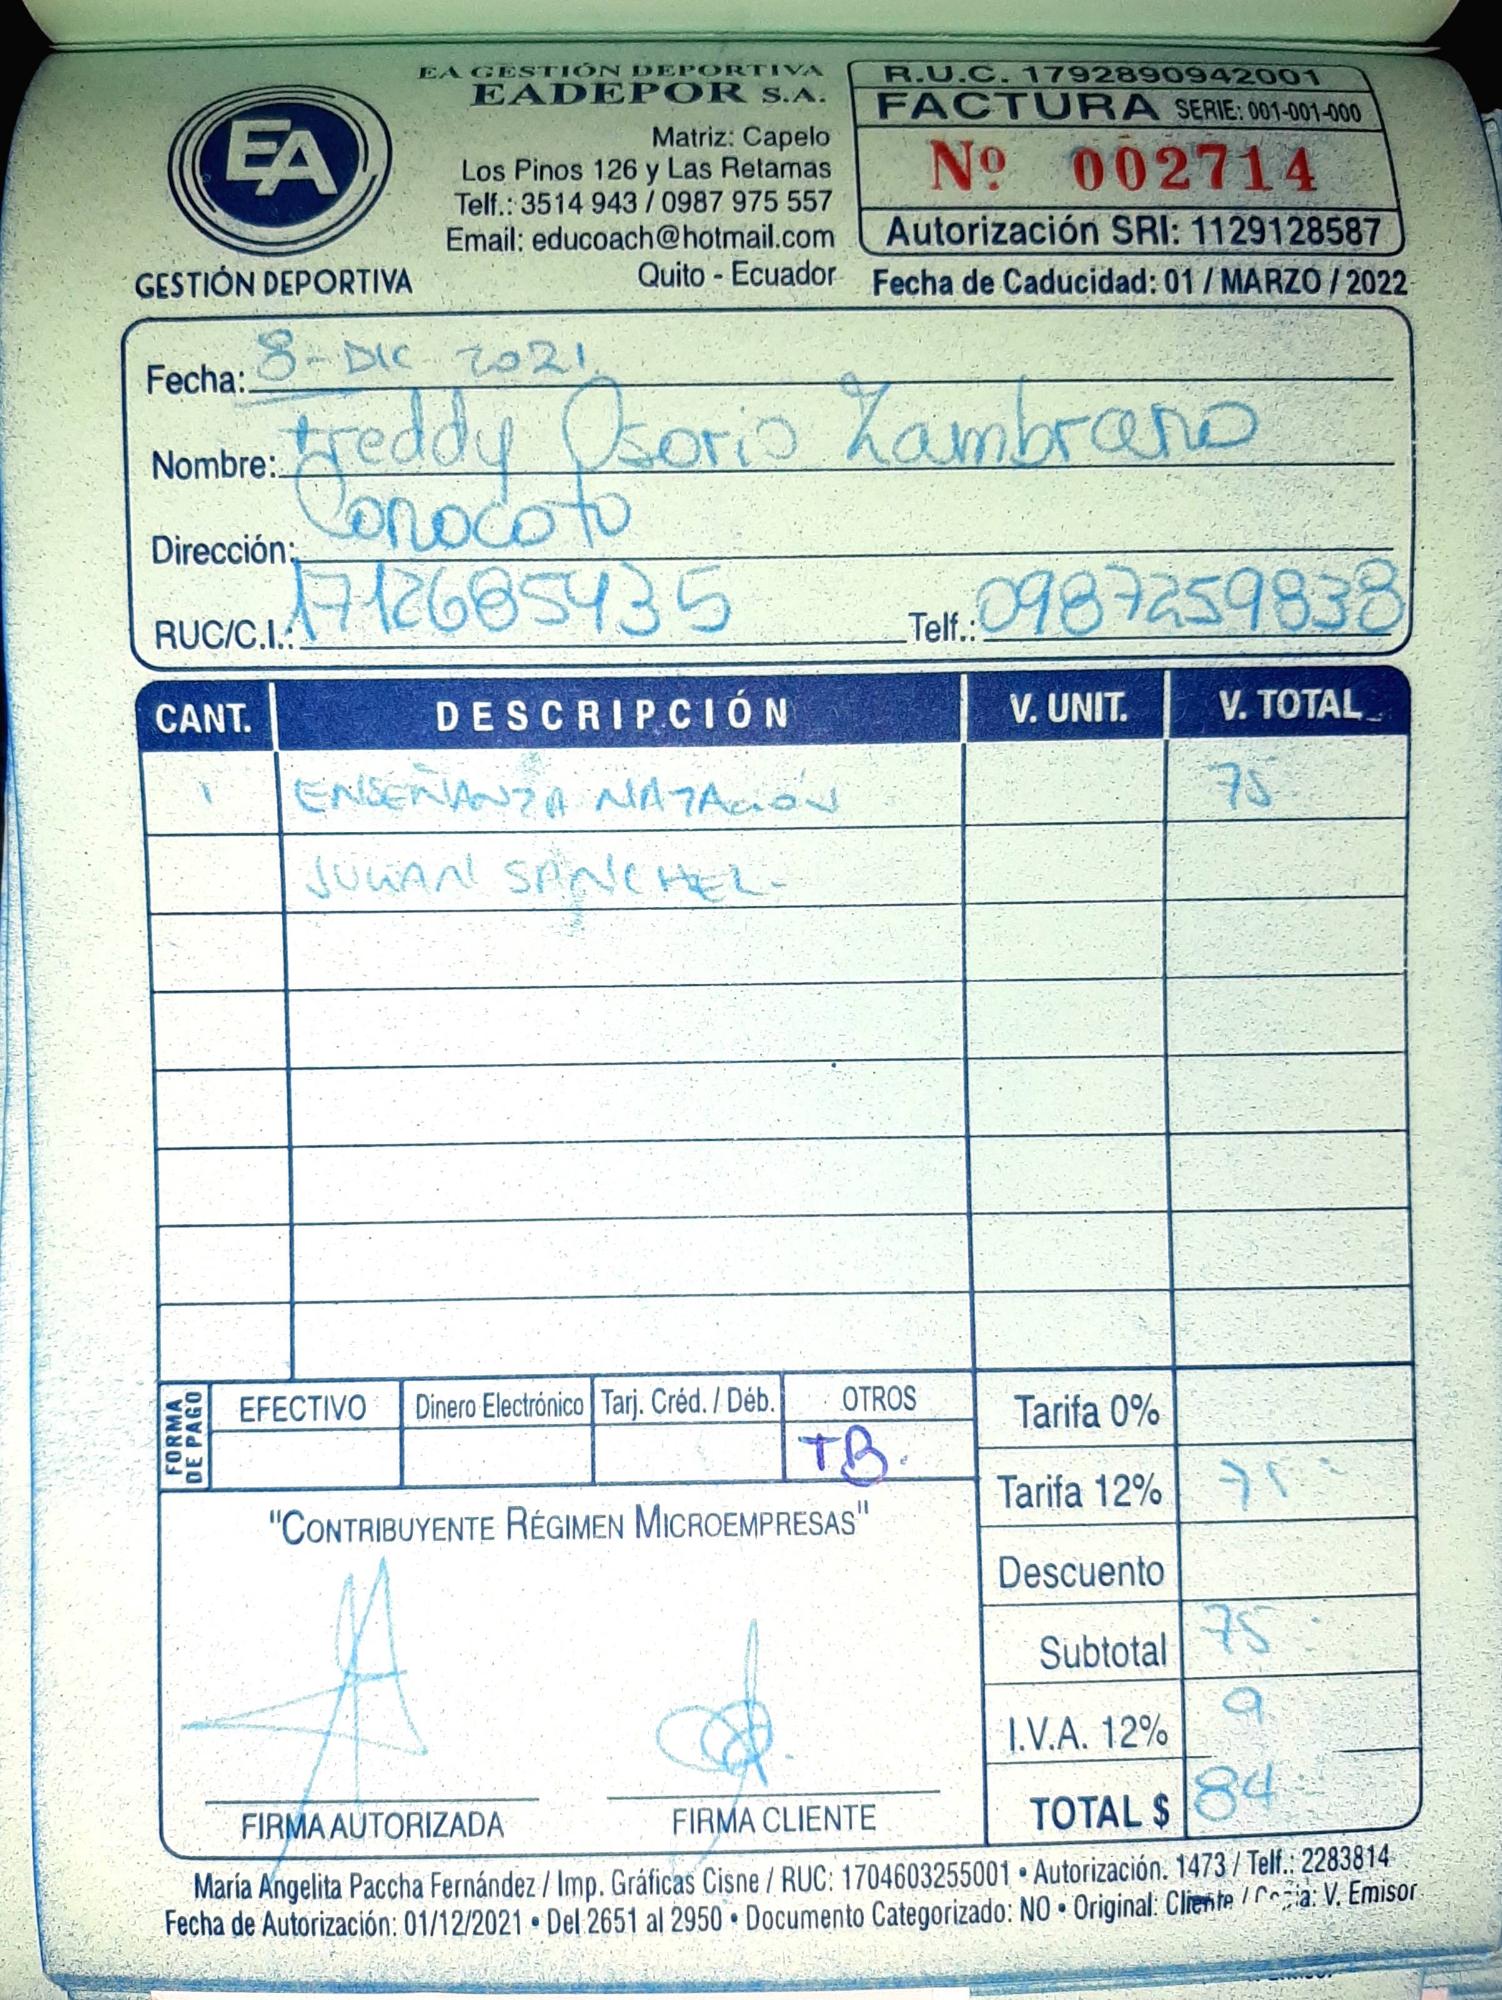 EA GESTIÓN DEPORTIVA
EADEPOR S.A.
Matriz: Capelo
Los Pinos 126 y Las Retamas
Telf.: 3514 943 / 0987 975 557
Email: educoach@hotmail.com
Quito - Ecuador
EA
GESTIÓN DEPORTIVA
R.U.C. 1792890942001
FACTURA SERIE: 001-001-000
Nº 002714
Autorización SRI: 1129128587
Fecha de Caducidad: 01 / MARZO / 2022
Fecha: 8-DIC 2021
Nombre: Freddy Osorio Zambrano
Dirección: Conocoto
RUC/C.I.: 1712685435 Telf.: 0987259838
CANT. DESCRIPCIÓN V. UNIT. V. TOTAL
1 ENSEÑANZA NATACIÓN 75
JULIAN SANCHEZ.
FORMA DE PAGO EFECTIVO Dinero Electrónico Tarj. Créd. / Déb. OTROS
TB.
Tarifa 0%
Tarifa 12% 75
Descuento
Subtotal 75
I.V.A. 12% 9
TOTAL $ 84
"CONTRIBUYENTE RÉGIMEN MICROEMPRESAS"
FIRMA AUTORIZADA FIRMA CLIENTE
María Angelita Paccha Fernández / Imp. Gráficas Cisne / RUC: 1704603255001 • Autorización. 1473 / Telf.: 2283814
Fecha de Autorización: 01/12/2021 • Del 2651 al 2950 • Documento Categorizado: NO • Original: Cliente / Copia: V. Emisor